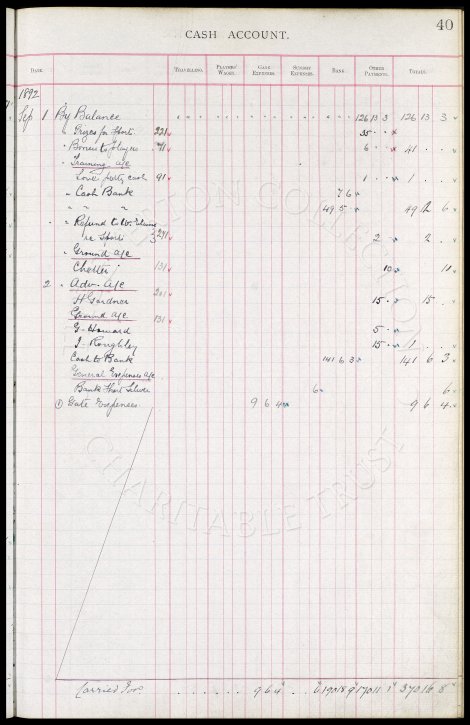 40
CASH ACCOUNT.
DATE. TRAVELLING. PLAYERS' WAGES. GATE EXPENSES. SUNDRY EXPENSES. BANK. OTHER PAYMENTS. TOTALS.
1892
Sep 1 By Balance 126 13 3 126 13 3
" Prizes for Sports 221 35 . .
" Bonus to Players 6 . . 41 . .
" Training a/c
Love petty cash 91 1 . . 1 . .
" Cash Bank 7 6
" " " 49 5 . 49 12 6
" Refund to W.
re Sports 2 . . 2 . .
" Ground a/c
131 10 10
2 " Adv. a/c
H Gardner 201 15 . 15 .
Ground a/c
G. Howard 131 5 .
J. Roughley 15 . 1 . .
Cash to Bank 141 6 3 141 6 3
General Expenses a/c
Bank Short 6 6
Gate Expenses 9 6 4 9 6 4
Carried For 9 6 4 6 190 18 9 170 11 1 370 16 8
EVERTON COLLECTION
CHARITABLE TRUST